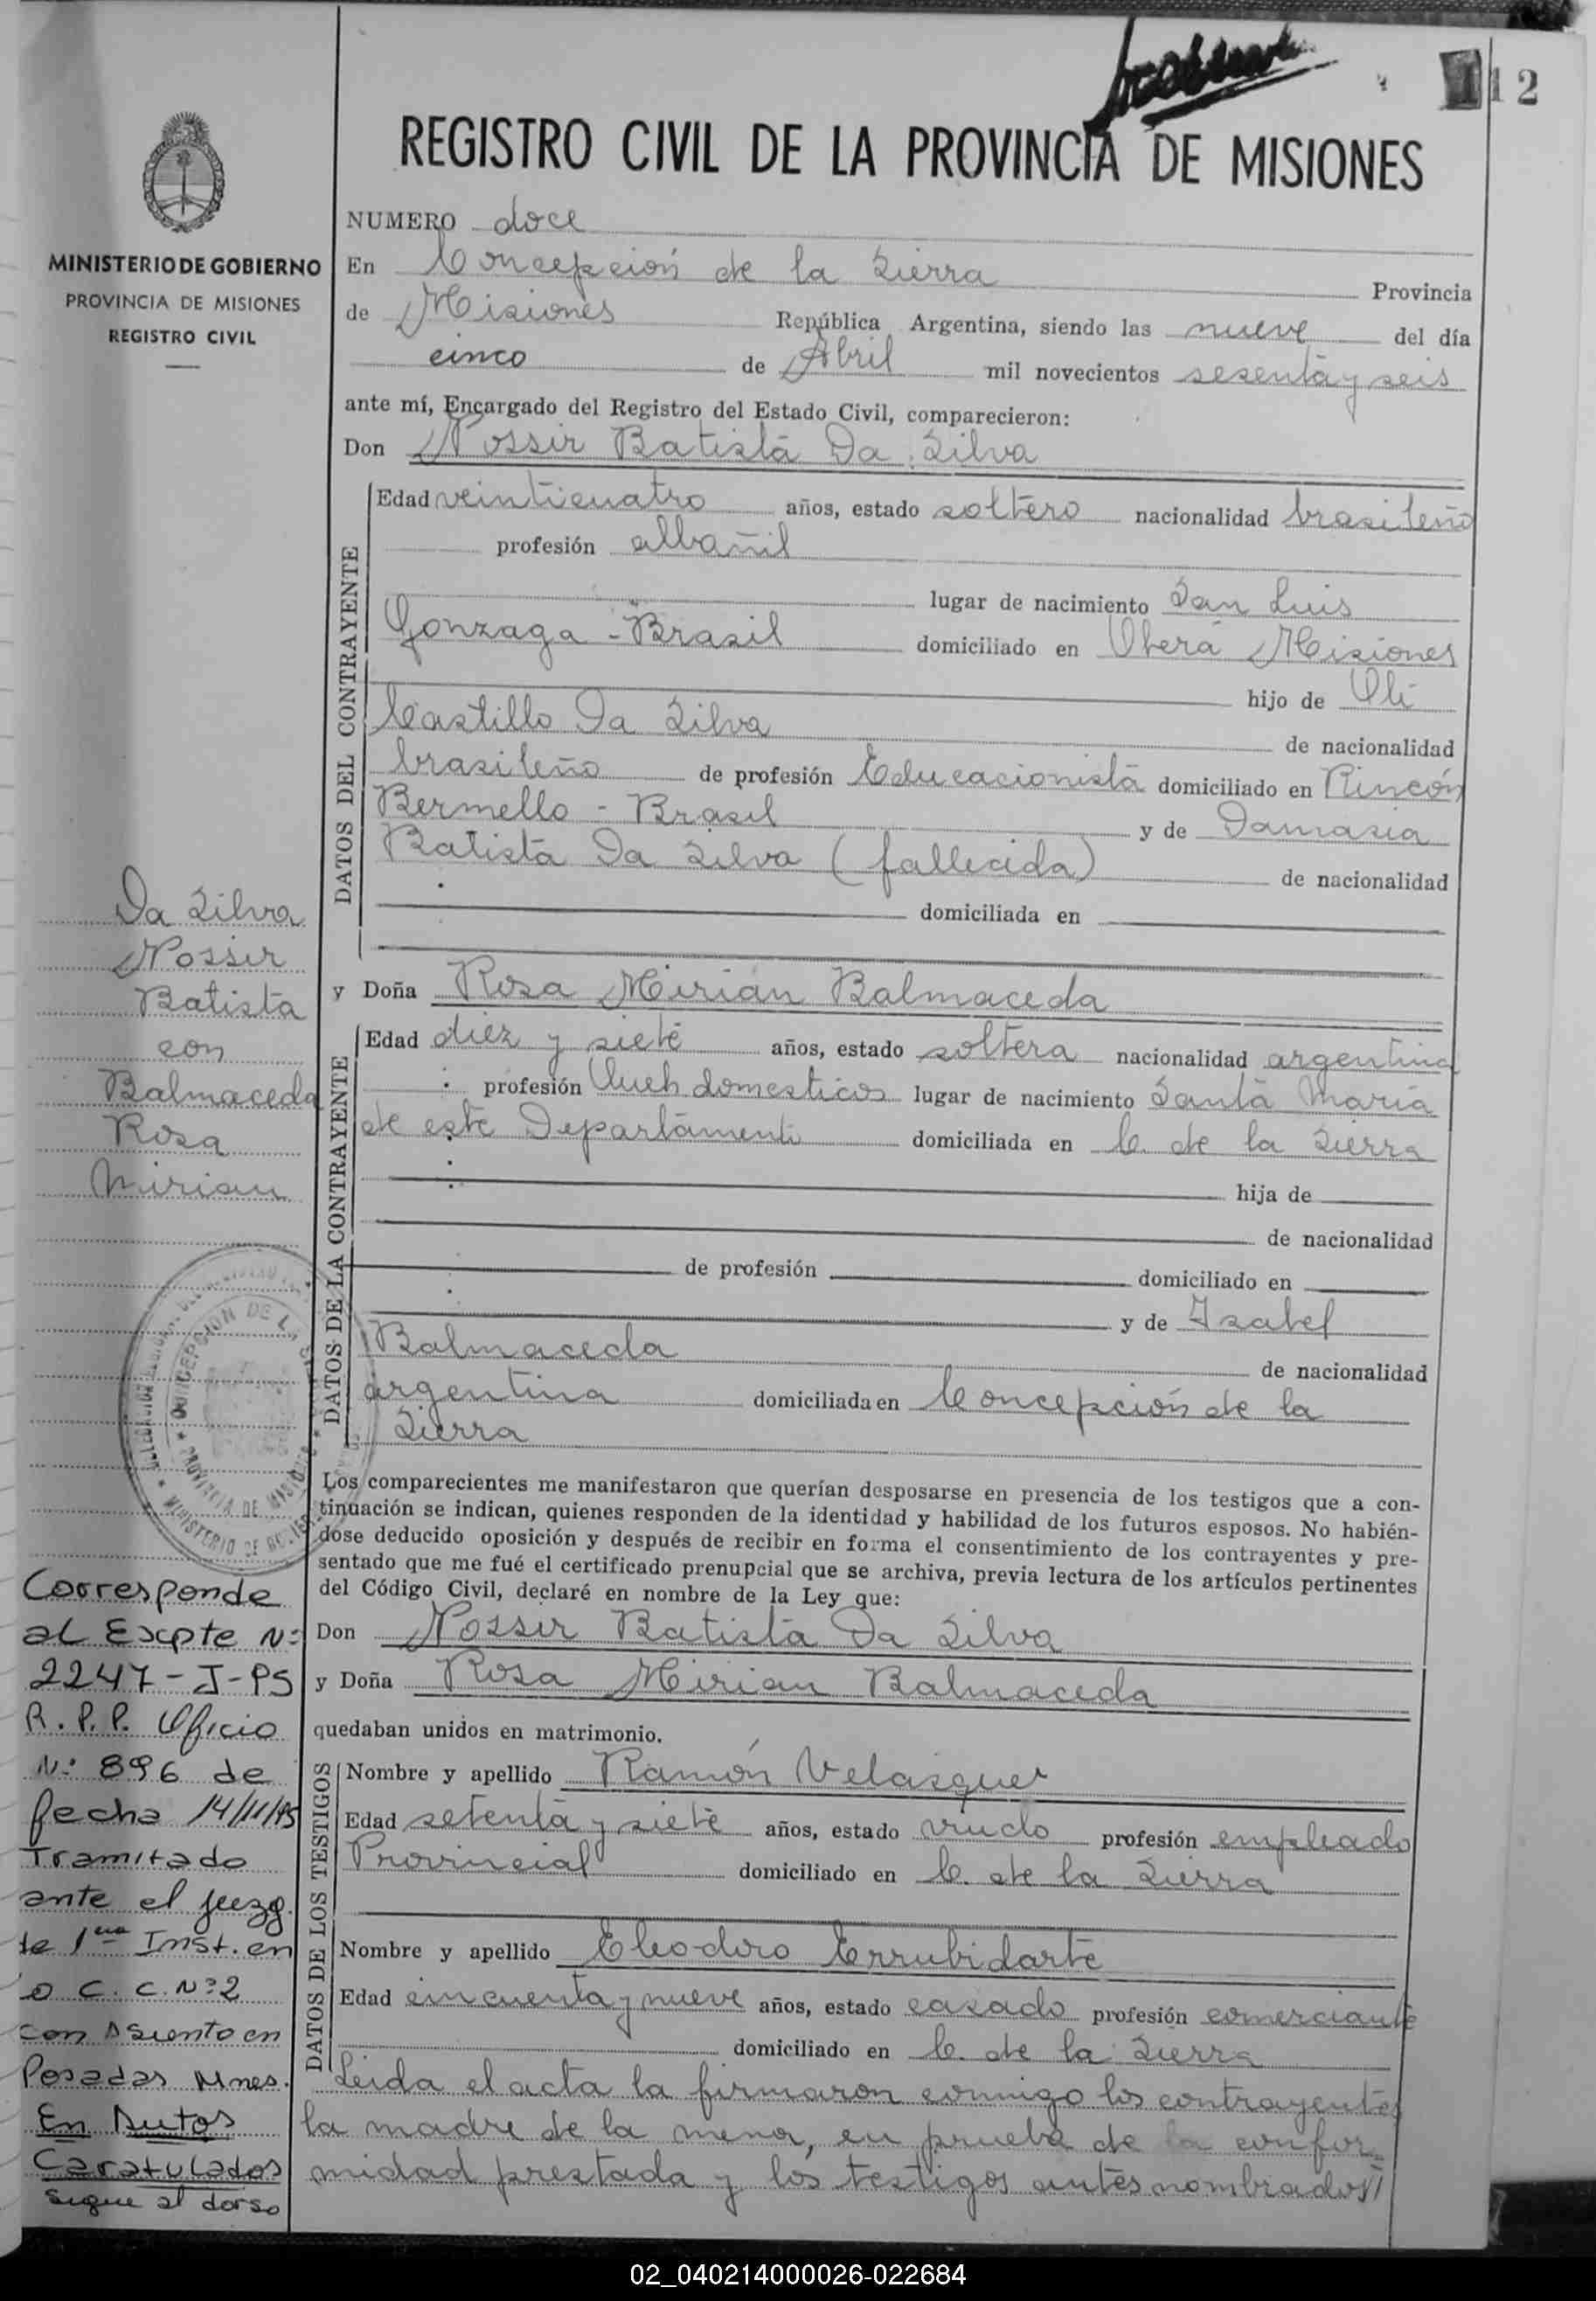 12
REGISTRO CIVIL DE LA PROVINCIA DE MISIONES
MINISTERIO DE GOBIERNO
PROVINCIA DE MISIONES
REGISTRO CIVIL
NUMERO doce
En Concepción de la Sierra Provincia
de Misiones República Argentina, siendo las nueve del día
cinco de Abril mil novecientos sesenta y seis
ante mí, Encargado del Registro del Estado Civil, comparecieron:
Don Nossir Batista Da Silva
DATOS DEL CONTRAYENTE
Edad veinticuatro años, estado soltero nacionalidad brasileño
profesión albañil
lugar de nacimiento San Luis
Gonzaga - Brasil domiciliado en Oberá Misiones
hijo de Oli
Castillo Da Silva de nacionalidad
brasileño de profesión Educacionista domiciliado en Rincón
Bermello - Brasil y de Damasia
Batista Da Silva (fallecida) de nacionalidad
domiciliada en
y Doña Rosa Mirian Balmaceda
DATOS DE LA CONTRAYENTE
Edad diez y siete años, estado soltera nacionalidad argentina
profesión Queh. domesticos lugar de nacimiento Santa María
de este Departamento domiciliada en C. de la Sierra
hija de
de nacionalidad
de profesión domiciliado en
y de Isabel
Balmaceda de nacionalidad
argentina domiciliada en Concepción de la
Sierra
Los comparecientes me manifestaron que querían desposarse en presencia de los testigos que a con-
tinuación se indican, quienes responden de la identidad y habilidad de los futuros esposos. No habién-
dose deducido oposición y después de recibir en forma el consentimiento de los contrayentes y pre-
sentado que me fué el certificado prenupcial que se archiva, previa lectura de los artículos pertinentes
del Código Civil, declaré en nombre de la Ley que:
Don Nossir Batista Da Silva
y Doña Rosa Mirian Balmaceda
quedaban unidos en matrimonio.
DATOS DE LOS TESTIGOS
Nombre y apellido Ramón Velasquez
Edad setenta y siete años, estado viudo profesión empleado
Provincial domiciliado en C. de la Sierra
Nombre y apellido Eleodoro Errubidarte
Edad cincuenta y nueve años, estado casado profesión comerciante
domiciliado en C. de la Sierra
Leida el acta la firmaron conmigo los contrayentes
la madre de la menor, en prueba de la confor
midad prestada y los testigos antes nombrados//
Da Silva
Nossir
Batista
con
Balmaceda
Rosa
Mirian
CONCEPCION DE LA
PROVINCIA DE MISIONES
MINISTERIO DE
Corresponde
al Expte Nº
2247-J-PS
R.P.P. Oficio
Nº 896 de
fecha 14/11/95
Tramitado
ante el juzg.
de 1era Inst. en
o C. C. Nº 2
con Asiento en
Posadas Mnes.
En Autos
Caratulados
sigue al dorso
02_040214000026-022684